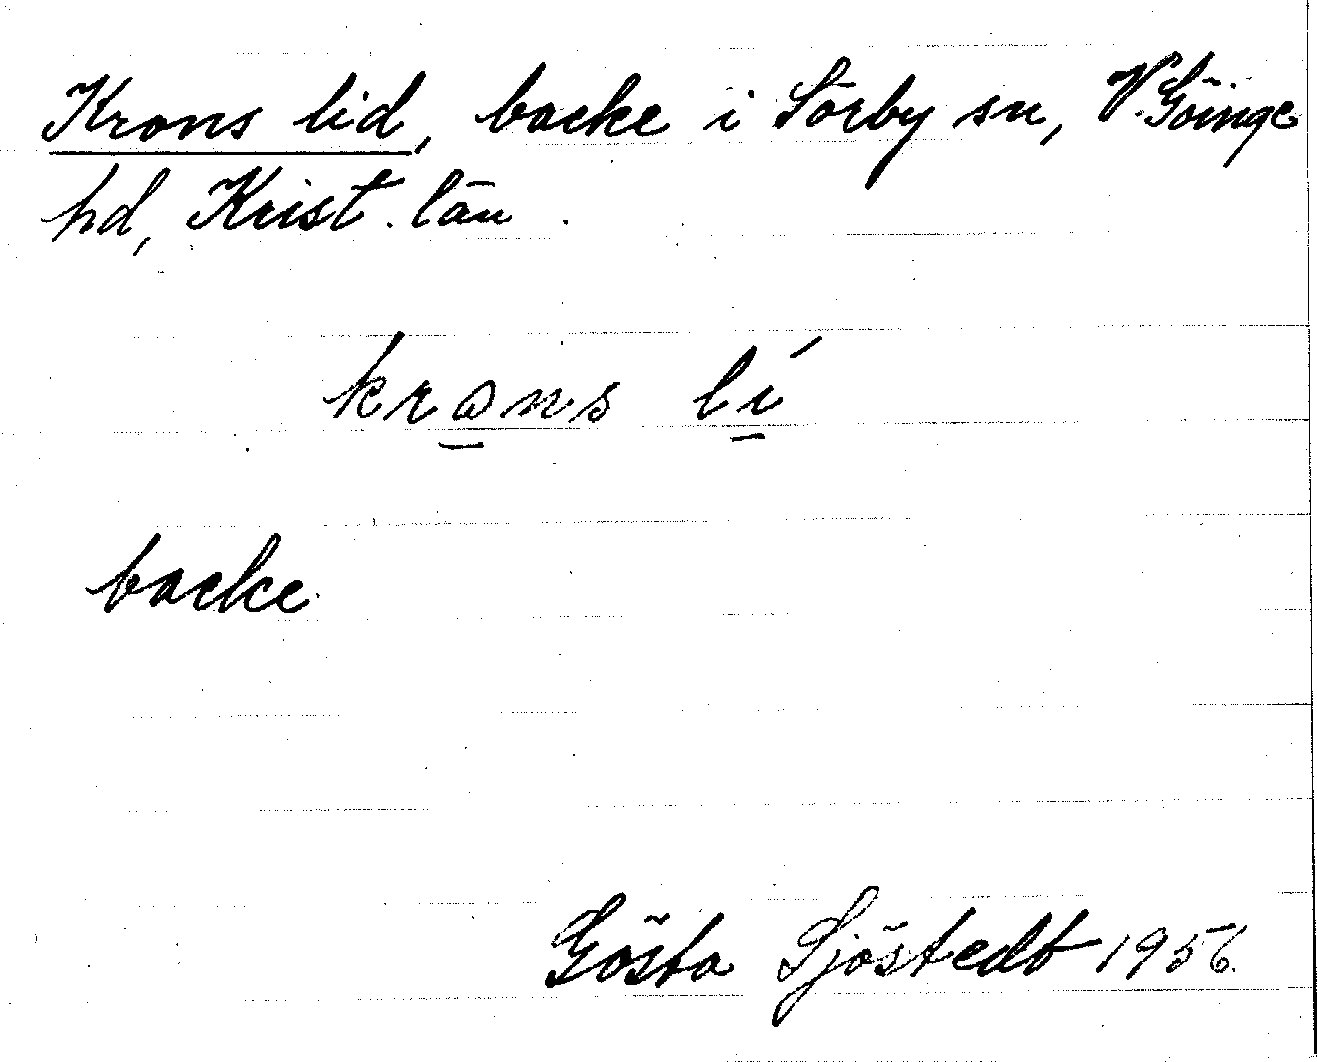 Krons lid, backe i Sörby sn, V. Göinge
hd, Krist. län.
krans lí
backe
Gösta Sjöstedt 1956.